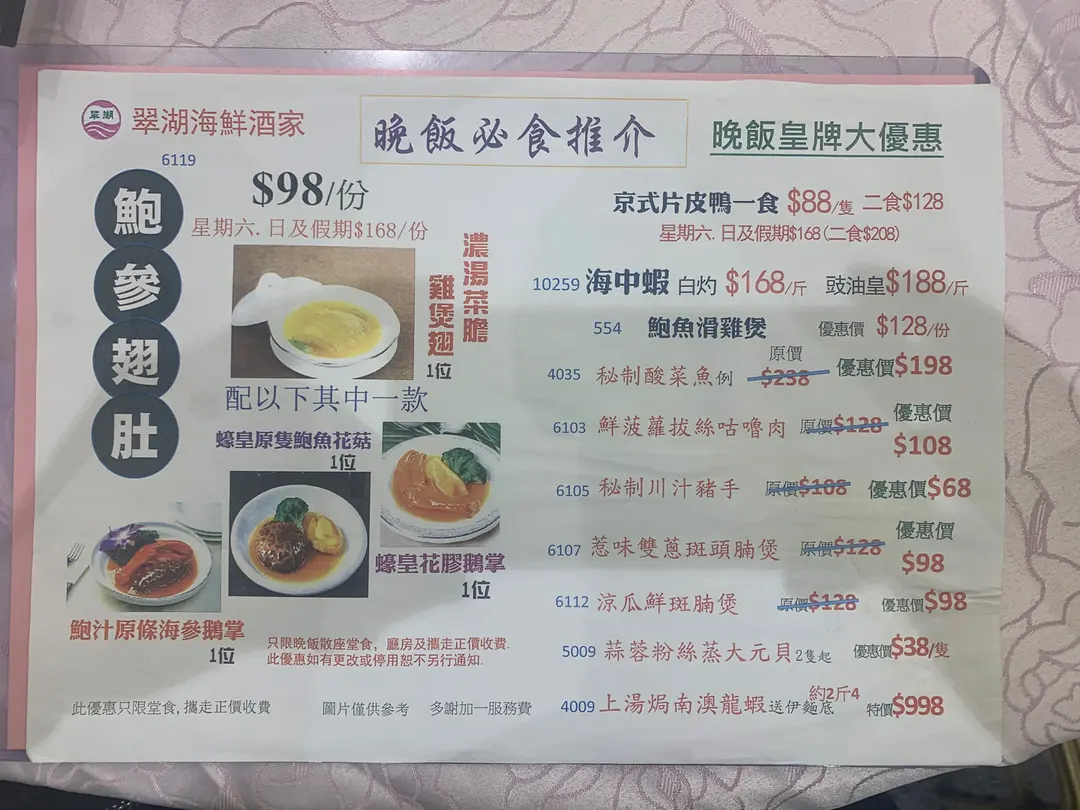 翠湖
翠湖海鮮酒家
晚飯必食推介
晚飯皇牌大優惠
6119
鮑參翅肚
$98/份
星期六.日及假期$168/份
濃湯菜膽
雞煲翅
1位
配以下其中一款
蠔皇原隻鮑魚花菇
1位
蠔皇花膠鵝掌
1位
鮑汁原條海參鵝掌
1位
只限晚飯散座堂食, 廳房及攜走正價收費.
此優惠如有更改或停用恕不另行通知.
此優惠只限堂食,攜走正價收費 圖片僅供參考 多謝加一服務費
京式片皮鴨一食 $88/隻 二食$128
星期六.日及假期$168(二食$208)
10259 海中蝦 白灼 $168/斤 豉油皇$188/斤
554 鮑魚滑雞煲 優惠價 $128/份
4035 秘制酸菜魚例 原價$238 優惠價$198
6103 鮮菠蘿拔絲咕嚕肉 原價$128 優惠價$108
6105 秘制川汁豬手 原價$108 優惠價$68
6107 惹味雙蔥斑頭腩煲 原價$128 優惠價$98
6112 涼瓜鮮斑腩煲 原價$128 優惠價$98
5009 蒜蓉粉絲蒸大元貝2隻起 優惠價$38/隻
4009 上湯焗南澳龍蝦送伊麵底 約2斤4 特價$998